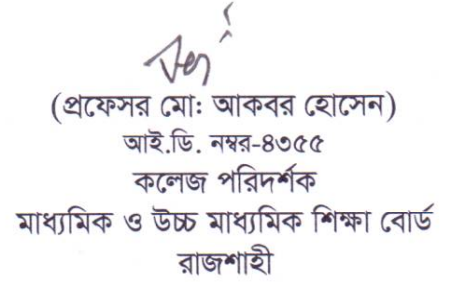 (প্রফেসর মো: আকবর হোসেন)
আই.ডি. নম্বর-৪৩৫৫
কলেজ পরিদর্শক
মাধ্যমিক ও উচ্চ মাধ্যমিক শিক্ষা বোর্ড
রাজশাহী